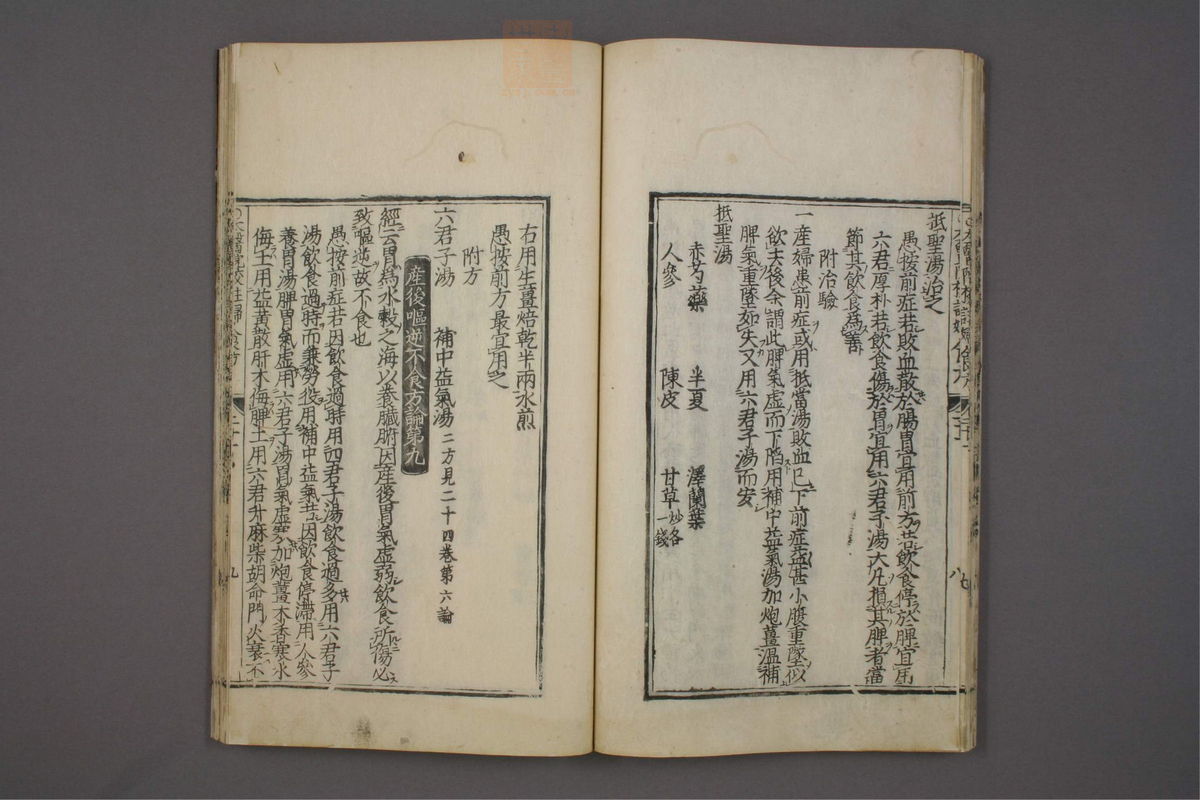 抵聖湯治之
愚按前症若敗血散於腸胃宜用前方若飲食停於脾宜用
六君厚朴若飲食傷於胃宜用六君子湯大凡損其脾者當
節其飲食為善
附治驗
一產婦患前症或用抵當湯敗血已下前症益甚小腹重墜似
欲去後余謂此脾氣虛而下陷用補中益氣湯加炮薑溫補
脾氣重墜如失又用六君子湯而安
抵聖湯
赤芍藥 半夏 澤蘭葉
人參 陳皮 甘草炒各一錢
右用生薑焙乾半兩水煎
愚按前方最宜用之
附方
六君子湯 補中益氣湯二方見二十四卷第六論
産後嘔逆不食方論第九
經云胃為水穀之海以養臟腑因產後胃氣虛弱飲食所傷必
致嘔逆故不食也
愚按前症若因飲食過時用四君子湯飲食過多用六君子
湯飲食過時而兼勞役用補中益氣若因飲食停滯用人參
養胃湯脾胃氣虛用六君子湯胃氣虛寒加炮薑木香寒水
侮土用益黃散肝木侮脾土用六君升麻柴胡命門火衰不